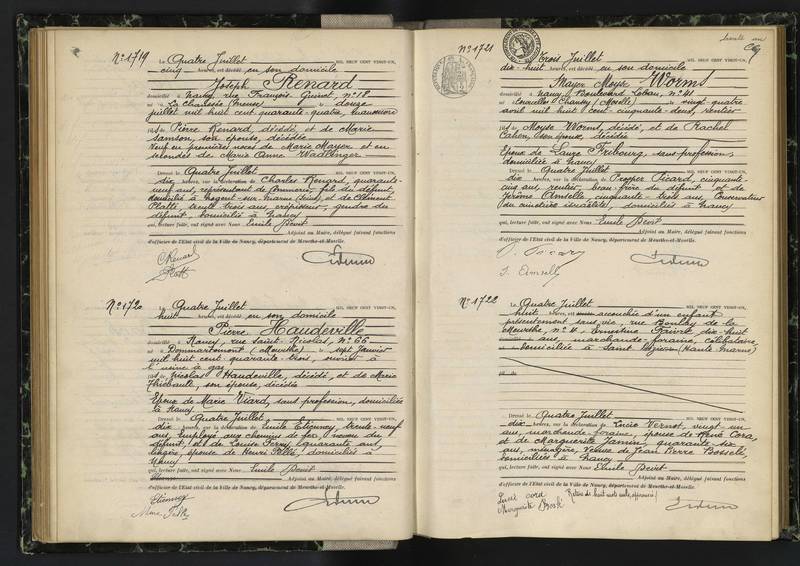 N° 1719
Le Quatre Juillet MIL NEUF CENT VINGT-UN,
cinq heures, est décédé en son domicile
Joseph Renard
domicilié à Nancy, rue François Guinet, n° 18
né à La Chaussée (Meuse) le douze
juillet mil huit cent quarante-quatre,
fils de Pierre Renard, décédé, et de Marie
Samson, son épouse, décédée
Veuf en premières noces de Marie Mayer et en
secondes de Marie Anne
Dressé le Quatre Juillet MIL NEUF CENT VINGT-UN,
dix heures, sur la déclaration de Charles Renard, quarante-
neuf ans, représentant de commerce, fils du défunt,
domicilié à Nogent-sur-Marne (Seine), et de Clément
Platti, trois ans, crépisseur, gendre du
défunt, domicilié à Nancy
qui, lecture faite, ont signé avec Nous Emile Devit
Adjoint au Maire, délégué faisant fonctions
d'officier de l'État civil de la Ville de Nancy, département de Meurthe-et-Moselle.
CRenard
N° 1720
Le Quatre Juillet MIL NEUF CENT VINGT-UN,
huit heures, est décédé en son domicile
Pierre Haudeville
domicilié à Nancy, rue Saint Nicolas, n° 66
né à Dommartemont (Meurthe) le sept Janvier
mil huit cent quarante-trois, ouvrier à
l'usine à gaz
fils de Nicolas Haudeville, décédé, et de Marie
Thiébault, son épouse, décédée
Epoux de Marie Viard, sans profession, domiciliée
à Nancy
Dressé le Quatre Juillet MIL NEUF CENT VINGT-UN,
dix heures, sur la déclaration de Emile Etienney, trente-neuf
ans, employé aux chemins de fer, neveu du
défunt, et de Louise quarante ans,
lingère, épouse de Henri domiciliés à
Nancy
qui, lecture faite, ont signé avec Nous Emile Devit
Adjoint au Maire, délégué faisant fonctions
d'officier de l'État civil de la Ville de Nancy, département de Meurthe-et-Moselle.
Etienney
N° 1721
Le Trois Juillet MIL NEUF CENT VINGT-UN,
dix-huit heures, est décédé en son domicile
Mayer Moyse Worms
domicilié à Nancy, Boulevard Lobau, n° 81
né à Courcelles Chaussy (Moselle) le vingt-quatre
avril mil huit cent cinquante-deux, rentier
fils de Moyse Worms, décédé, et de Rachel
Cahen, son épouse, décédée
Epoux de Laure Fribourg, sans profession,
domiciliée à Nancy
Dressé le Quatre Juillet MIL NEUF CENT VINGT-UN,
dix heures, sur la déclaration de Prosper Picard, cinquante-
cinq ans, rentier, beau-frère du défunt et de
Jérôme cinquante-trois ans, Conservateur
du cimetière israélite, domiciliés à Nancy
qui, lecture faite, ont signé avec Nous Emile Devit
Adjoint au Maire, délégué faisant fonctions
d'officier de l'État civil de la Ville de Nancy, département de Meurthe-et-Moselle.
N° 1722
Le Quatre Juillet MIL NEUF CENT VINGT-UN,
huit heures, est accouchée d'un enfant
présentement sans vie, rue Boulay de la
Meurthe, n° Ernestine Faivre, dix-huit
ans, marchande foraine, célibataire,
domiciliée à Saint Dizier (Haute Marne)
fils de
Dressé le Quatre Juillet MIL NEUF CENT VINGT-UN,
dix heures, sur la déclaration de Lucie Vernot, vingt un
ans, marchande foraine, épouse de René Cora,
et de Marguerite Jannin, quarante six
ans, ménagère, Veuve de Jean Pierre Bosselé,
domiciliées à Nancy
qui, lecture faite, ont signé avec Nous Emile Devit
Adjoint au Maire, délégué faisant fonctions
d'officier de l'État civil de la Ville de Nancy, département de Meurthe-et-Moselle.
Marguerite